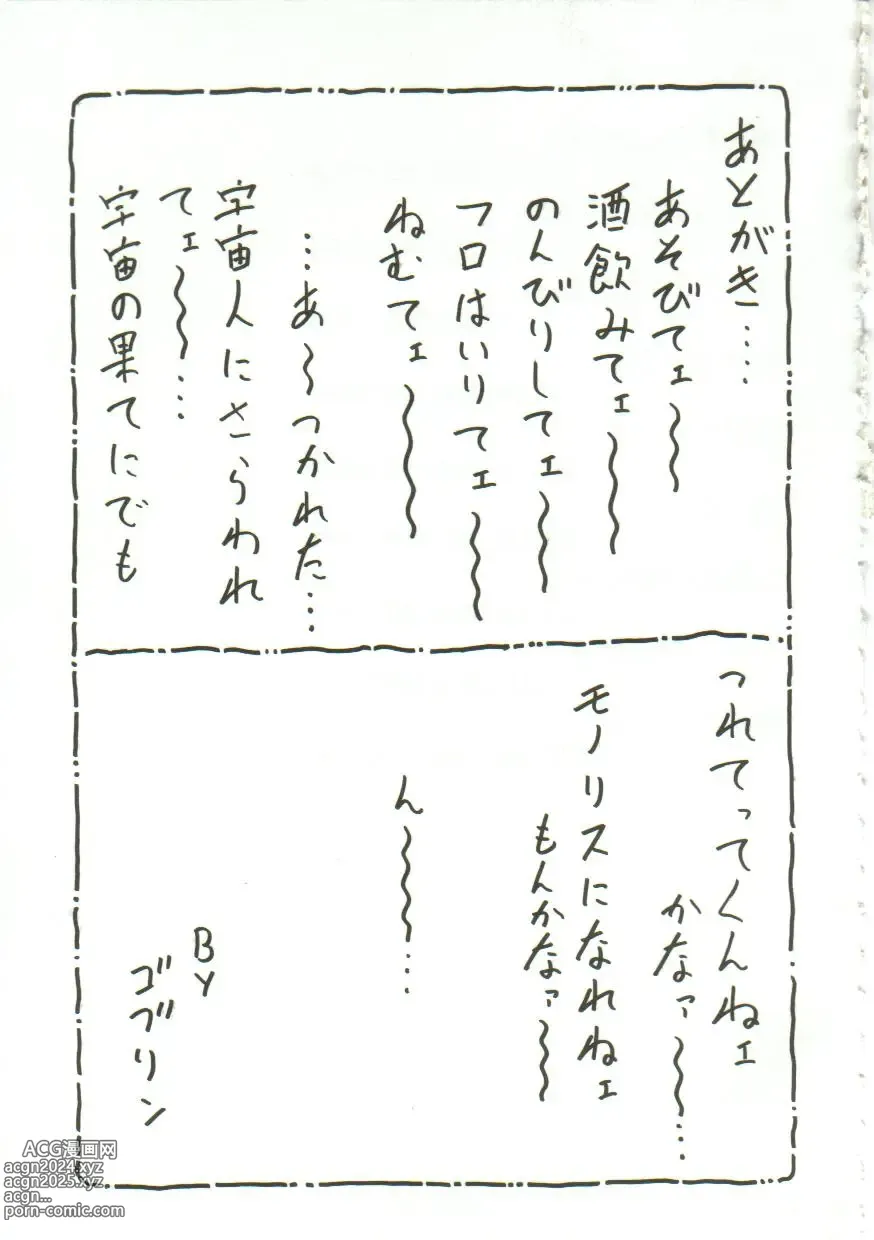 あとがき‥‥
あそびてェ〜〜
酒飲みてェ〜〜
のんびりしてェ〜〜
フロはいりてェ〜〜
ねむてェ〜〜
…あ〜つかれた…
宇宙人にさらわれ
てェ〜〜…
宇宙の果てにでも
つれてってくんねェ
かなァ〜〜…
モノリスになれねェ
もんかなァ〜〜
ん〜〜‥‥
BY
ゴブリン
ACG漫画网
acgn2024.xyz
acgn2025.xyz
acgn...
porn-comic.com